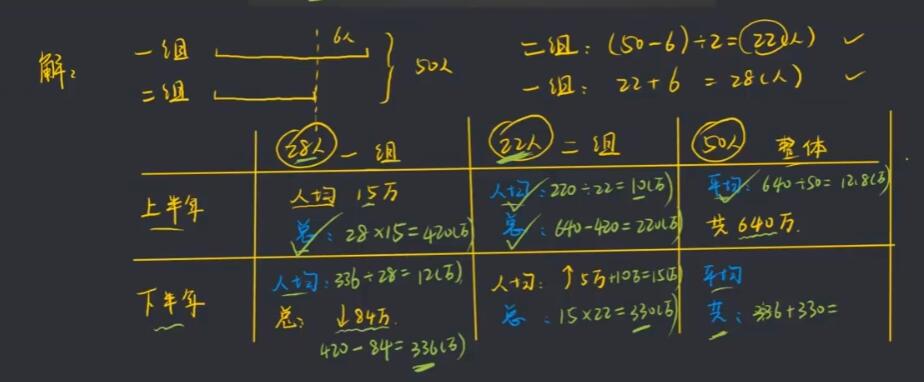 解：
一组 6人
二组
50人
二组：(50-6)÷2=22(人) ✓
一组：22+6=28(人) ✓
28人 一组 22人 二组 50人 整体
上半年
人均 15万
总：28×15=420(万)
人均：220÷22=10(万)
总：640-420=220(万)
平均：640÷50=12.8(万)
共 640万.
下半年
人均：336÷28=12(万)
总：↓84万.
420-84=336(万)
人均：↑5万+10万=15(万)
总：15×22=330(万)
平均
共：336+330=